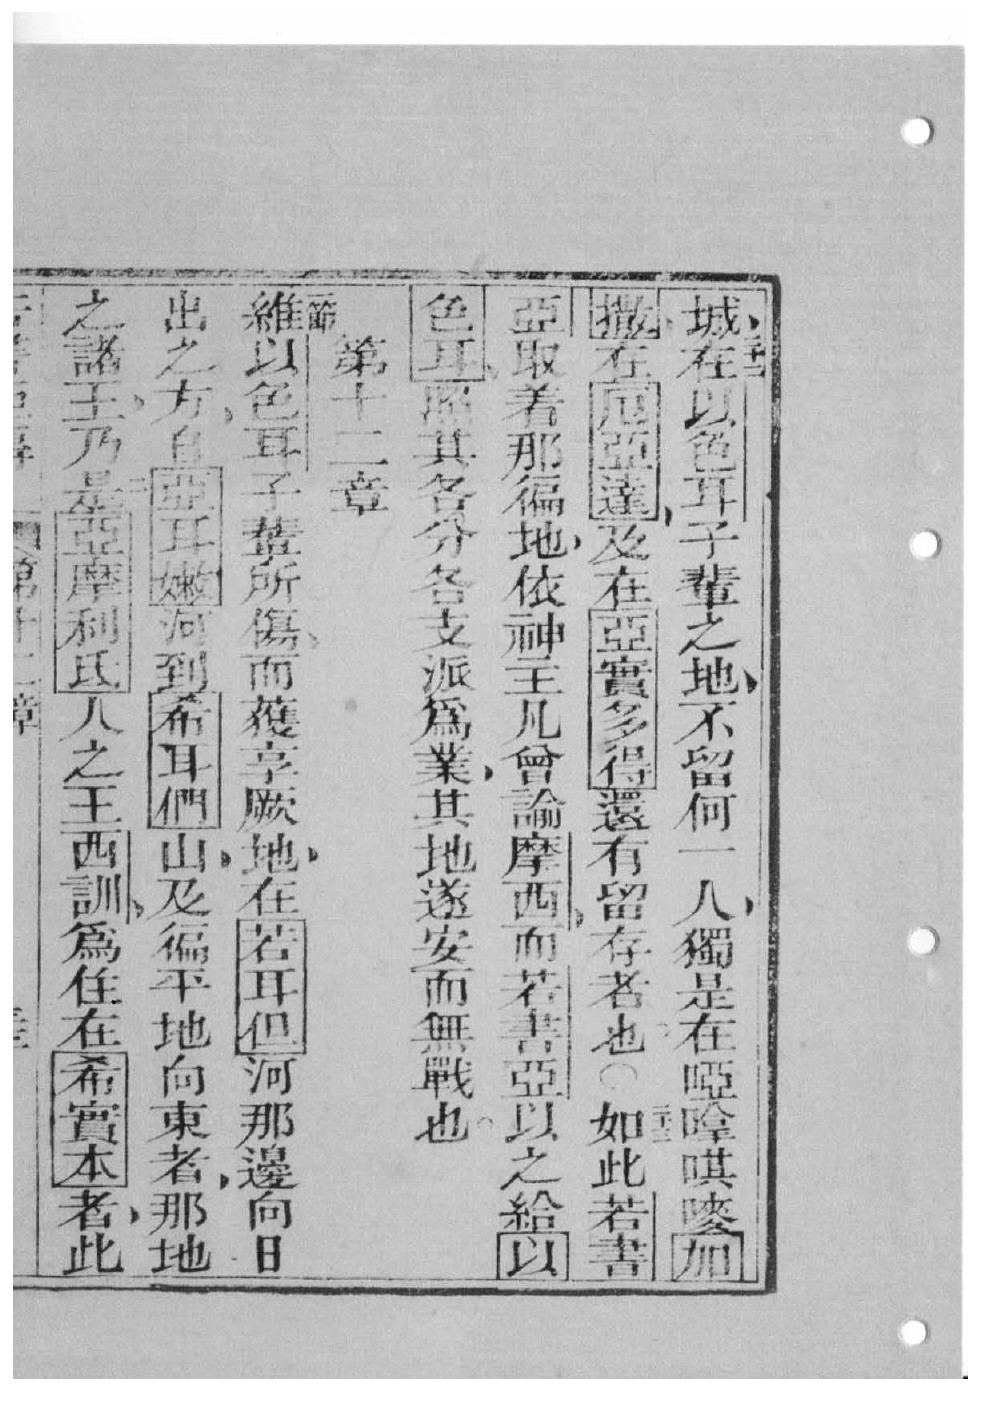 城在以色耳子輩之地不留何一人獨是在啞唫唭嘜加
撒在厄亞達及在亞實多得還有留存者也○如此若書
亞取着那徧地依神主凡曾論摩西而若書亞以之給以
色耳照其各分各支派爲業其地遂安而無戰也。
第十二章
一節
維以色耳子輩所傷而獲享厥地在若耳但河那邊向日
出之方自亞耳嫩河到希耳們山及徧平地向東者那地
之諸王乃是亞摩利氏人之王西訓爲住在希實本者此
第十二章